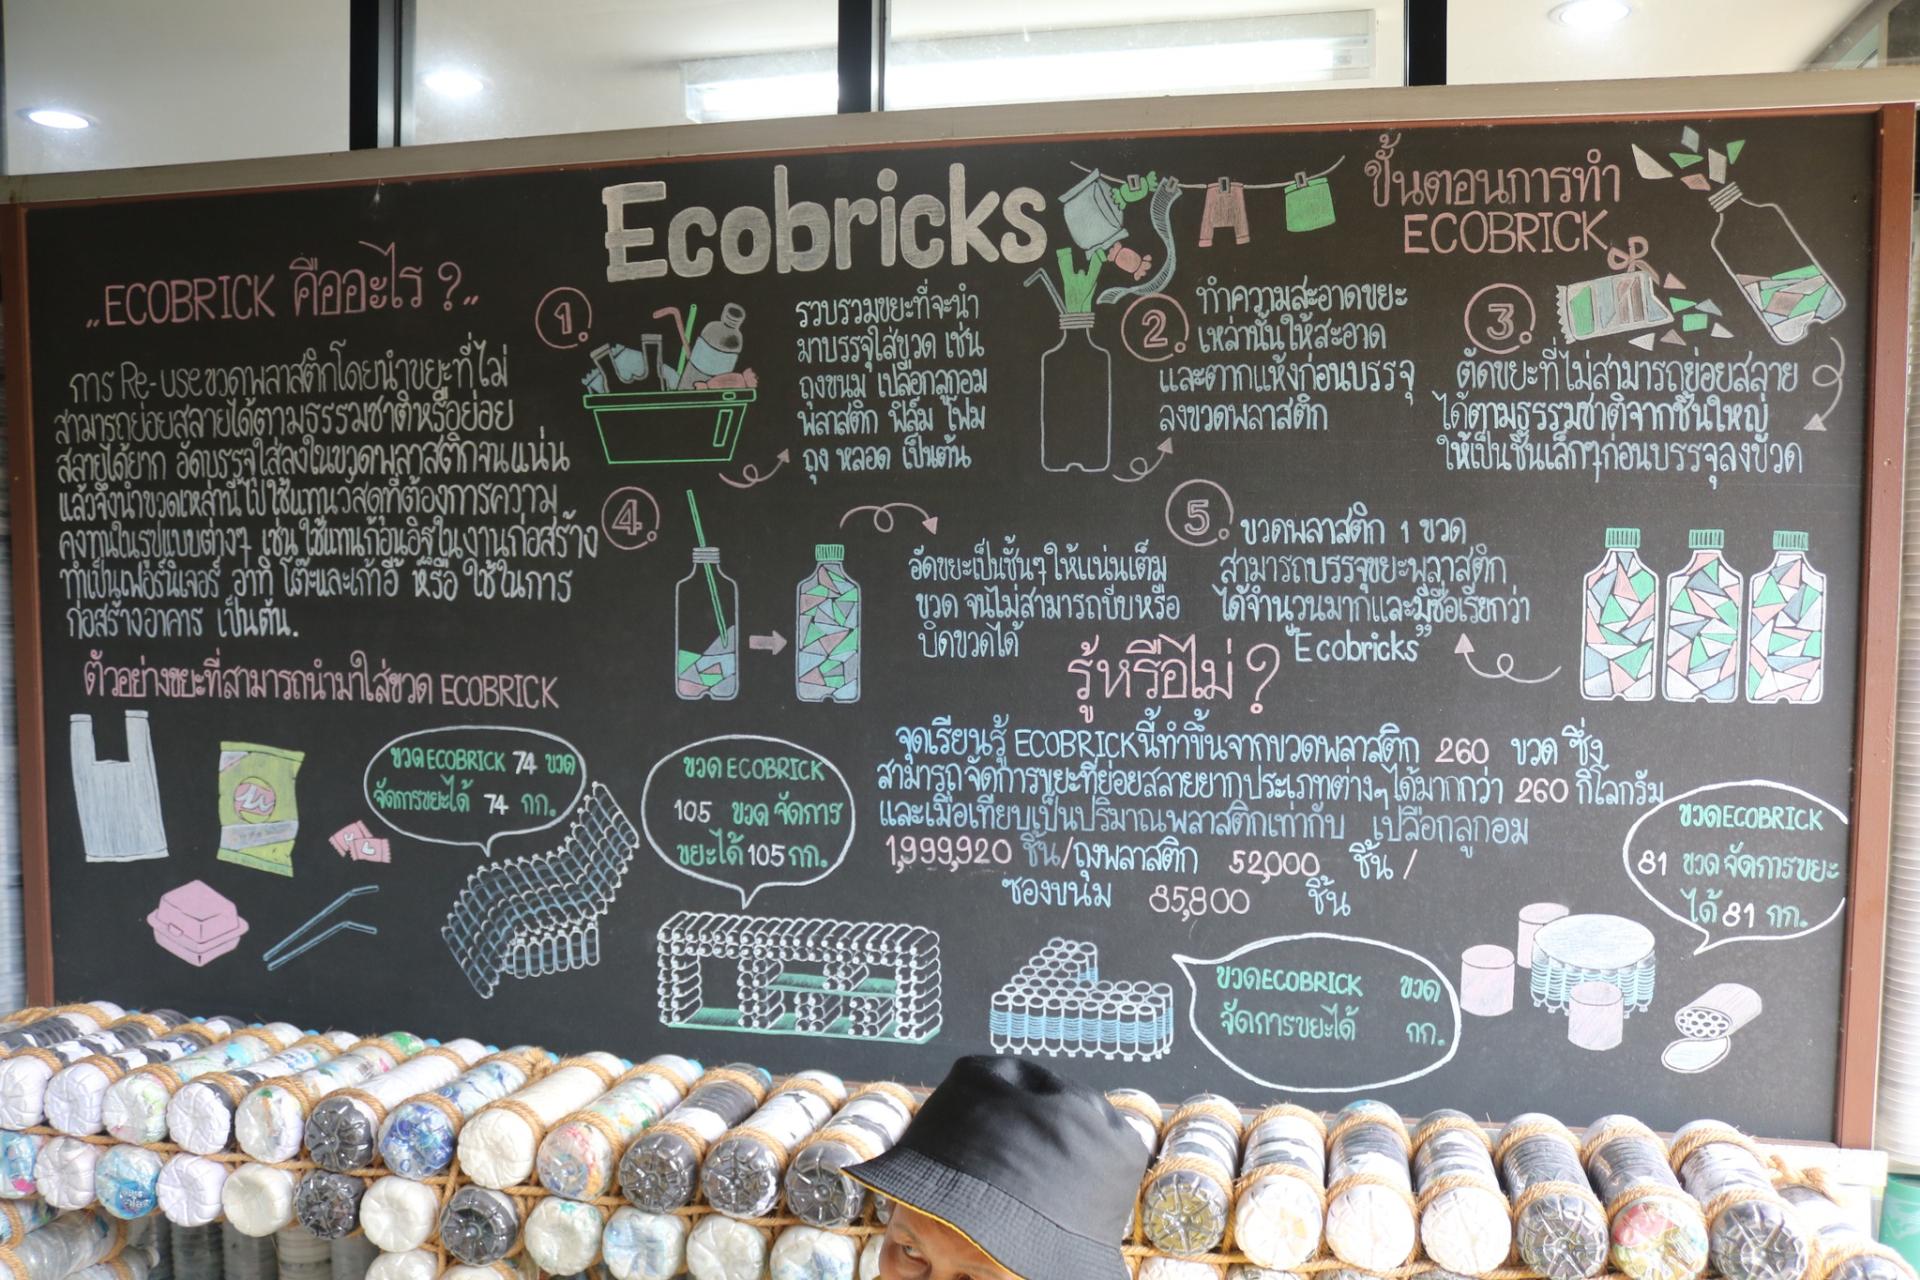 Ecobricks
ขั้นตอนการทำ
ECOBRICK
„ECOBRICK คืออะไร ?„
การ Re-use ขวดพลาสติกโดยนำขยะที่ไม่
สามารถย่อยสลายได้ตามธรรมชาติหรือย่อย
สลายได้ยาก อัดบรรจุใส่ลงในขวดพลาสติกจนแน่น
แล้วจึงนำขวดเหล่านี้ไปใช้แทนวัสดุที่ต้องการความ
คงทนในรูปแบบต่างๆ เช่น ใช้แทนก้อนอิฐในงานก่อสร้าง
ทำเป็นเฟอร์นิเจอร์ อาทิ โต๊ะและเก้าอี้ หรือ ใช้ในการ
ก่อสร้างอาคาร เป็นต้น.
1.
รวบรวมขยะที่จะนำ
มาบรรจุใส่ขวด เช่น
ถุงขนม เปลือกลูกอม
พลาสติก ฟิล์ม โฟม
ถุง หลอด เป็นต้น
2.
ทำความสะอาดขยะ
เหล่านั้นให้สะอาด
และตากแห้งก่อนบรรจุ
ลงขวดพลาสติก
3.
ตัดขยะที่ไม่สามารถย่อยสลาย
ได้ตามธรรมชาติจากชิ้นใหญ่
ให้เป็นชิ้นเล็กๆก่อนบรรจุลงขวด
4.
อัดขยะเป็นชั้นๆ ให้แน่นเต็ม
ขวด จนไม่สามารถบีบหรือ
บิดขวดได้
5.
ขวดพลาสติก 1 ขวด
สามารถบรรจุขยะพลาสติก
ได้จำนวนมากและมีชื่อเรียกว่า
"Ecobricks"
ตัวอย่างขยะที่สามารถนำมาใส่ขวด ECOBRICK
ขวด ECOBRICK 74 ขวด
จัดการขยะได้ 74 กก.
ขวด ECOBRICK
105 ขวด จัดการ
ขยะได้ 105 กก.
รู้หรือไม่ ?
จุดเรียนรู้ ECOBRICKนี้ทำขึ้นจากขวดพลาสติก 260 ขวด ซึ่ง
สามารถจัดการขยะที่ย่อยสลายยากประเภทต่างๆได้มากกว่า 260 กิโลกรัม
และเมื่อเทียบเป็นปริมาณพลาสติกเท่ากับ เปลือกลูกอม
1,999,920 ชิ้น/ถุงพลาสติก 52,000 ชิ้น /
ซองขนม 85,800 ชิ้น
ขวดECOBRICK
81 ขวด จัดการขยะ
ได้ 81 กก.
ขวดECOBRICK ขวด
จัดการขยะได้ กก.